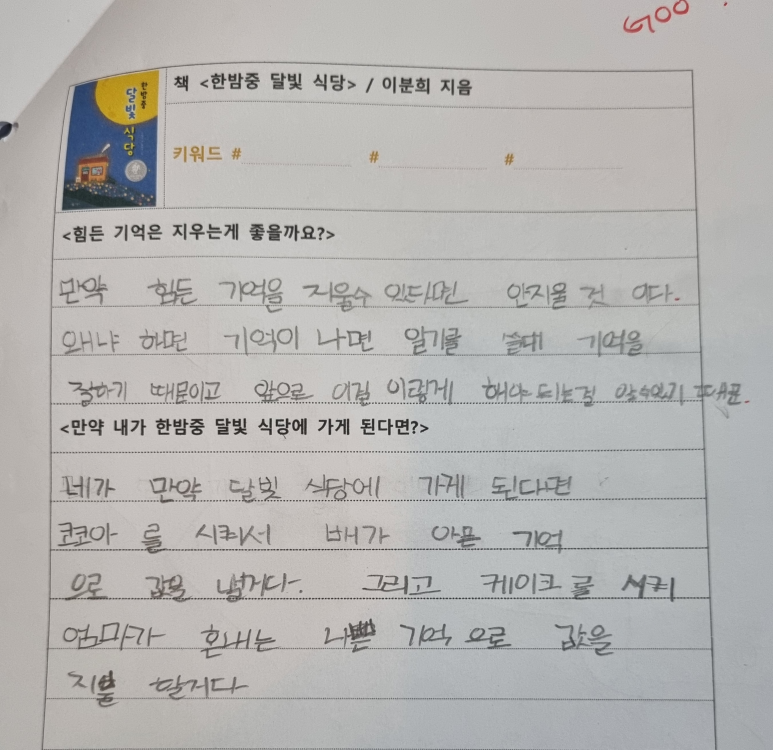 GOO
한밤중
달빛
식당
책 <한밤중 달빛 식당> / 이분희 지음
키워드 # # #
<힘든 기억은 지우는게 좋을까요?>
만약 힘든 기억을 지울수 있다면 안지울 것 이다.
왜냐 하면 기억이 나면 일기를 쓸때 기억을
잘하기 때문이고 앞으로 이걸 이렇게 해야 되는걸 알수있기 때문.
<만약 내가 한밤중 달빛 식당에 가게 된다면?>
네가 만약 달빛 식당에 가게 된다면
코코아 를 시켜서 배가 아픈 기억
으로 값을 낼거다. 그리고 케이크 를 시켜
엄마가 혼내는 나쁜 기억 으로 값을
지불 할거다